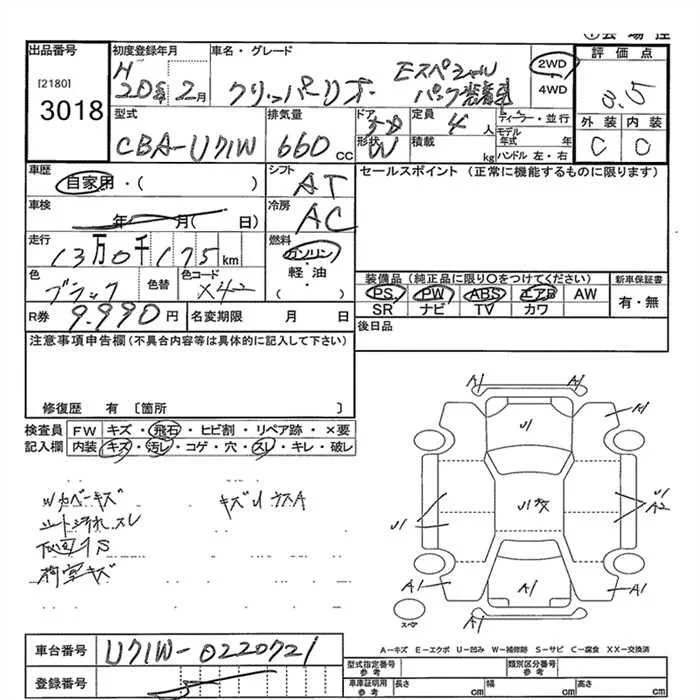 出品番号
[2180]
3018
初度登録年月
H
20年 2月
車名・グレード
クリッパーリオ
Eスペシャル
パック
2WD
4WD
評価点
3.5
外装 内装
C C
型式
CBA-U71W
排気量
660 cc
ドア
形状
W
定員
4 人
積載
kg
ディーラー・並行
モデル年式 年
ハンドル 左・右
車歴
自家用・( )
シフト
AT
セールスポイント (正常に機能するものに限ります)
車検
年 月( 日)
冷房
AC
走行
13万0千175 km
燃料
ガソリン
軽・油
( )
色
ブラック
色替
色コード
X42
装備品(純正品に限り〇をつけてください)
新車保証書
PS PW ABS エアB AW
SR ナビ TV カワ
有・無
R券
9.990 円
名変期限 月 日
後日品
注意事項申告欄(不具合内容等は具体的に記入して下さい)
修復歴 有〔箇所 〕
検査員記入欄
FW キズ・飛石・ヒビ割・リペア跡・×要
内装 キズ・汚レ・コゲ・穴・スレ・キレ・破レ
キズ
スレ
荷室キズ
A1 A1
U1 A1
U1
U1
A2
A1 A1 A1
A1
スペア
A-キズ E-エクボ U-凹み W-補修跡 S-サビ C-腐食 XX-交換済
車台番号
U71W-0220721
登録番号
型式指定番号 参考
類別区分番号 参考
車庫証明用 参考
長さ cm 幅 cm 高さ cm